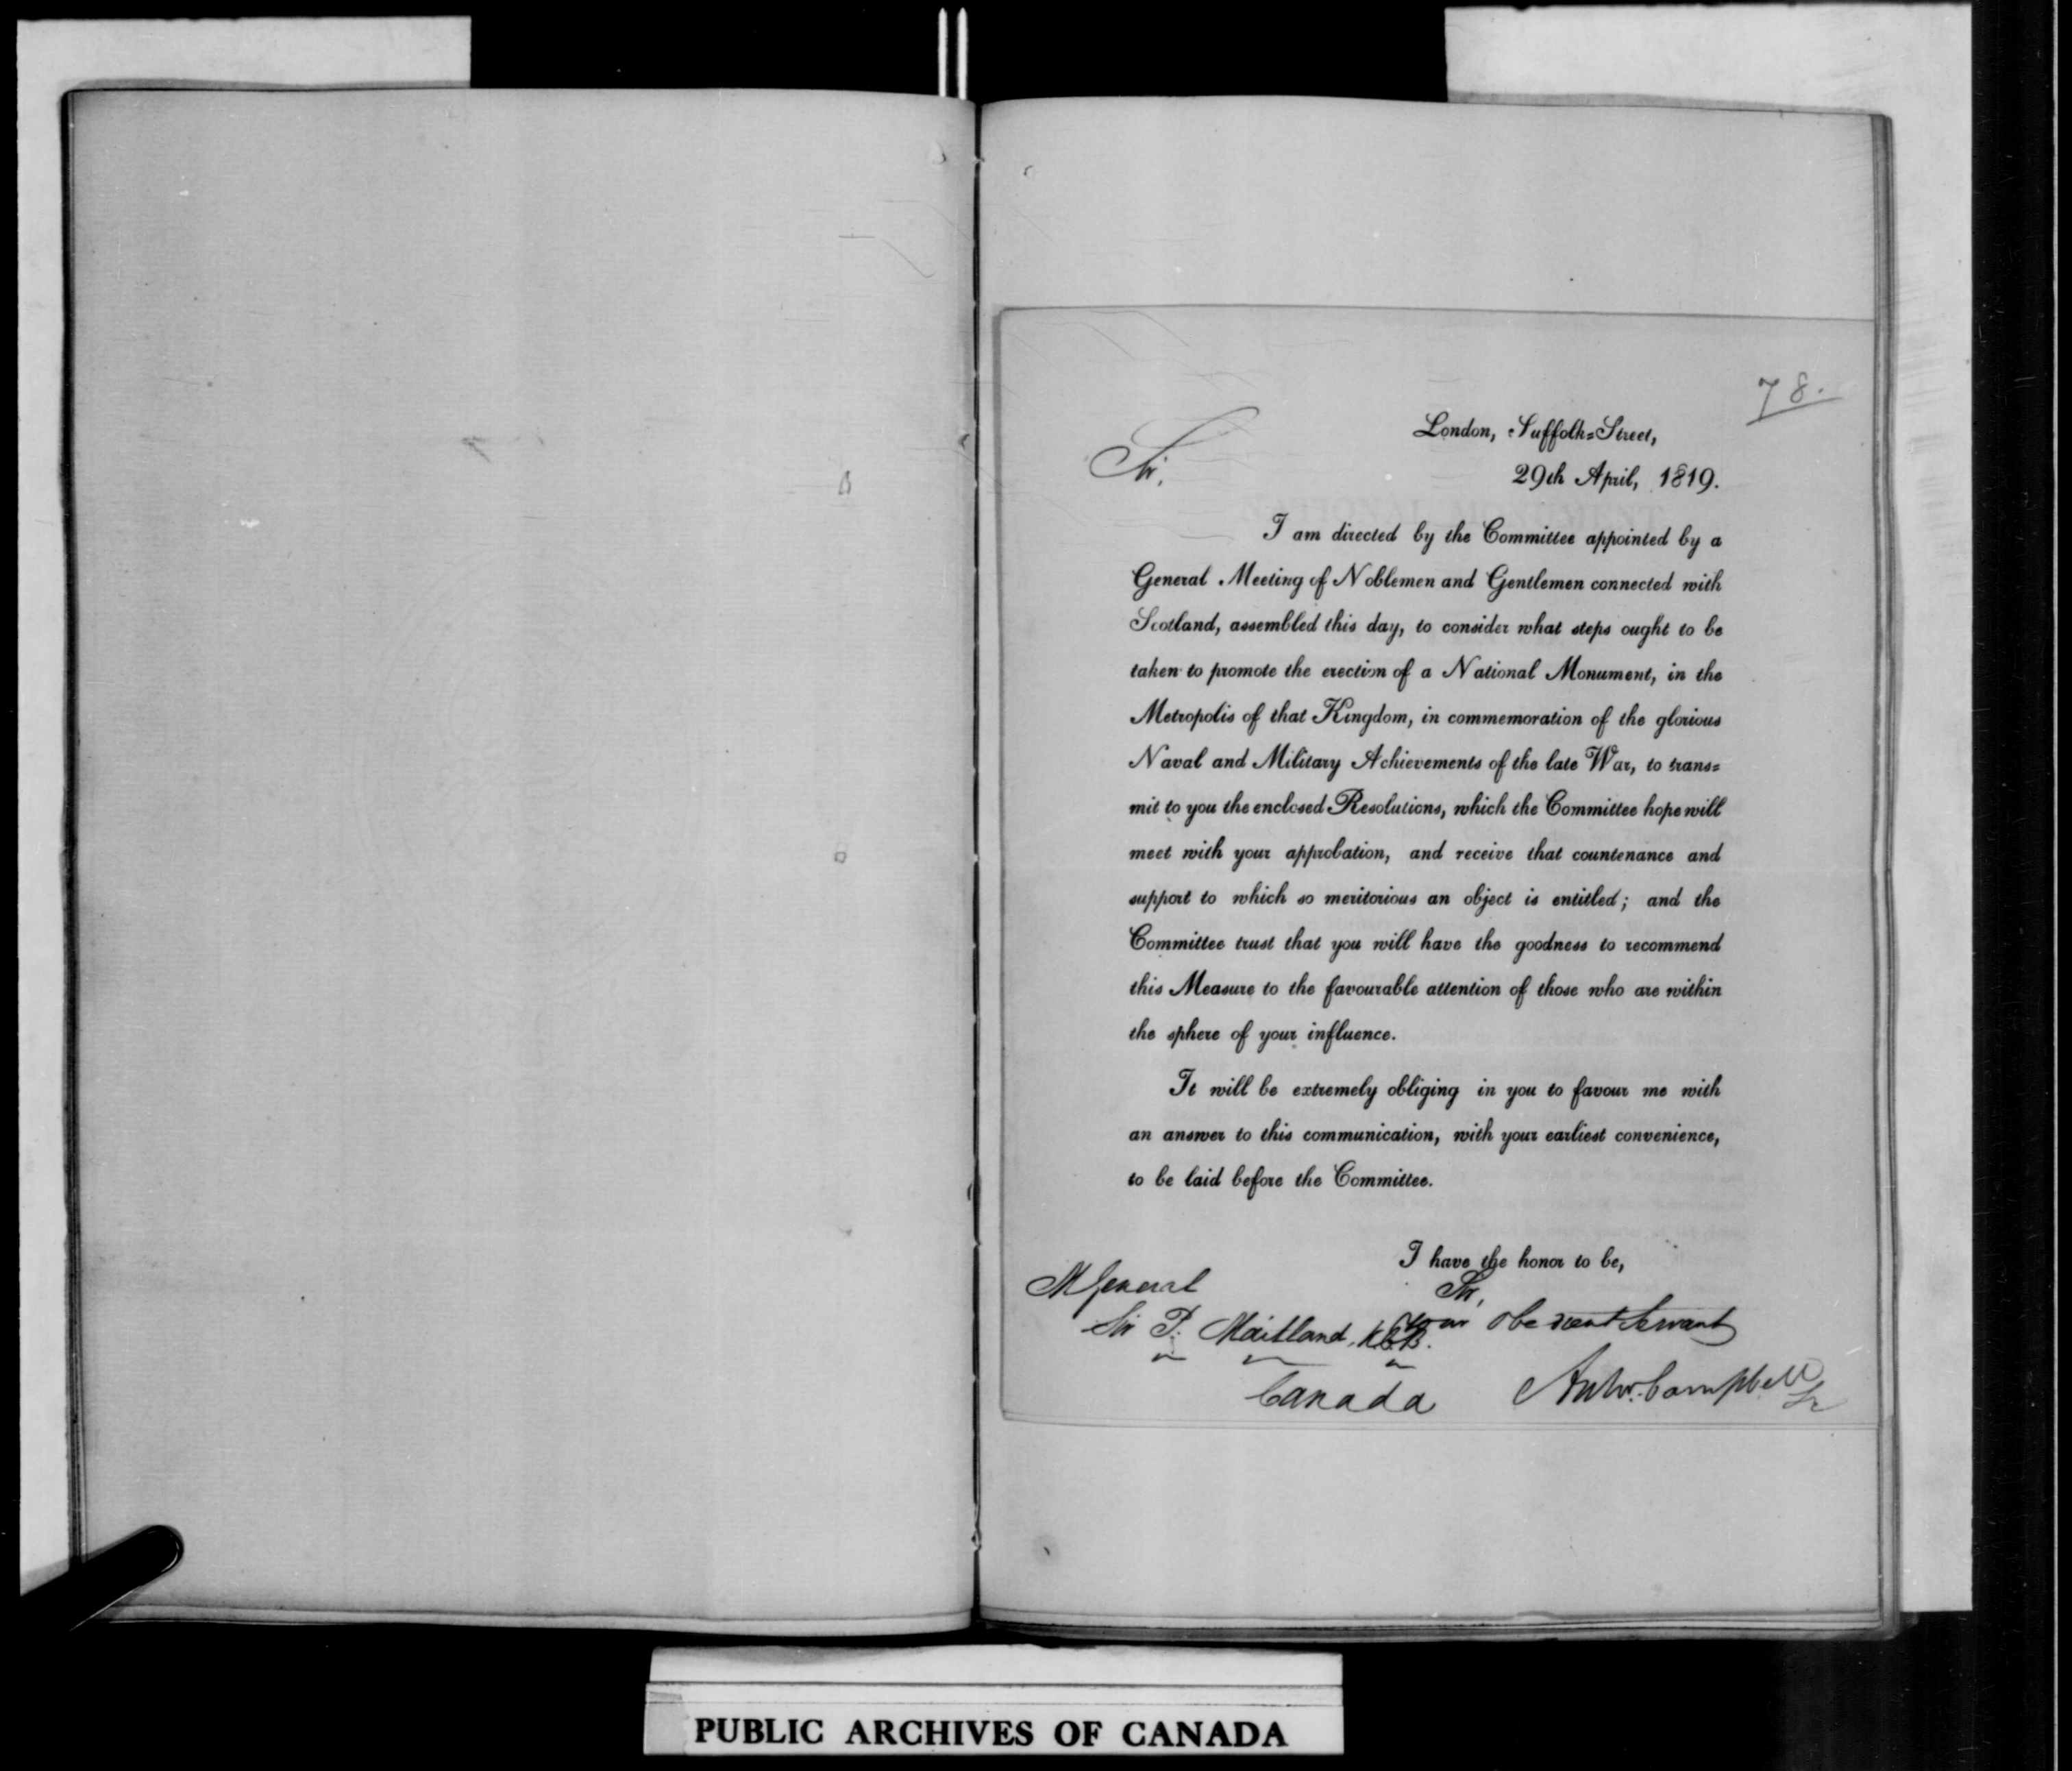 78.
London, Suffolk=Street,
Sir,
29th April, 1819.
I am directed by the Committee appointed by a
General Meeting of Noblemen and Gentlemen connected with
Scotland, assembled this day, to consider what steps ought to be
taken to promote the erection of a National Monument, in the
Metropolis of that Kingdom, in commemoration of the glorious
Naval and Military Achievements of the late War, to trans=
mit to you the enclosed Resolutions, which the Committee hope will
meet with your approbation, and receive that countenance and
support to which so meritorious an object is entitled; and the
Committee trust that you will have the goodness to recommend
this Measure to the favourable attention of those who are within
the sphere of your influence.
It will be extremely obliging in you to favour me with
an answer to this communication, with your earliest convenience,
to be laid before the Committee.
I have the honor to be,
Sir,
your obedient Servant
M General
Sir P. Maitland, K.C.B.
Canada
Campbell
PUBLIC ARCHIVES OF CANADA